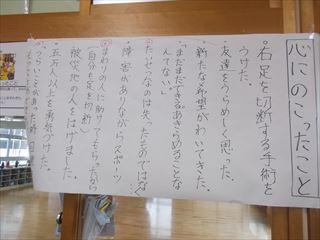 心にのこったこと
・右足を切断する手術を
うけた。
友達をうらめしく思った。
新たな希望がわいてきた。
「まだまだできる。あきらめることな
んてない。」
たいせつなのは失ったものではなく…
障害がありながらスポーツ
まわりの人に助けてもらったから
(自分も足を切断)
被災地の人をはげました。
五万人以上を勇気づけた。